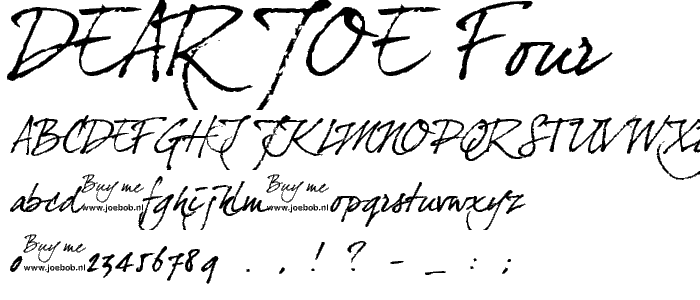 DEAR JOE Four
ABCDEFGHIJKLMNOPQRSTUVWXZ
abcdBuy me www.joebob.nlfghijklmBuy me www.joebob.nlopqrstuvwxyz
0Buy me www.joebob.nl23456789 . , ! ? - _ : ;